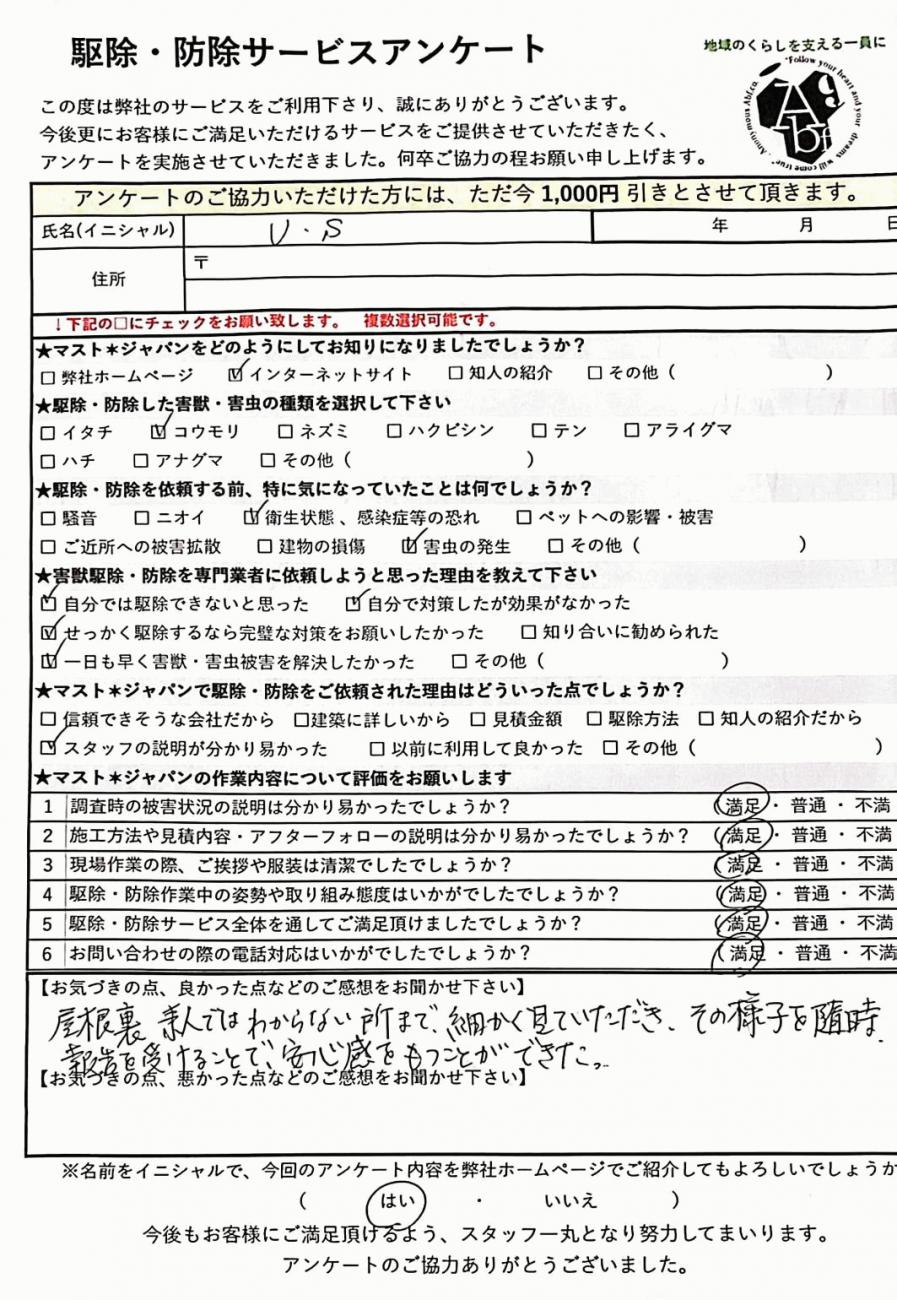 駆除・防除サービスアンケート
地域のくらしを支える一員に
この度は弊社のサービスをご利用下さり、誠にありがとうございます。
今後更にお客様にご満足いただけるサービスをご提供させていただきたく、
アンケートを実施させていただきました。何卒ご協力の程お願い申し上げます。
"Follow your heart and your dreams will come true". Anonymous Abf.co.
Agbf
アンケートのご協力いただけた方には、ただ今 1,000円 引きとさせて頂きます。
氏名(イニシャル) U・S 年 月 日
住所 〒
↓下記の□にチェックをお願い致します。 複数選択可能です。
★マスト＊ジャパンをどのようにしてお知りになりましたでしょうか？
□ 弊社ホームページ ☑ インターネットサイト □ 知人の紹介 □ その他（ ）
★駆除・防除した害獣・害虫の種類を選択して下さい
□ イタチ ☑ コウモリ □ ネズミ □ ハクビシン □ テン □ アライグマ
□ ハチ □ アナグマ □ その他（ ）
★駆除・防除を依頼する前、特に気になっていたことは何でしょうか？
□ 騒音 □ ニオイ ☑ 衛生状態、感染症等の恐れ □ ペットへの影響・被害
□ ご近所への被害拡散 □ 建物の損傷 ☑ 害虫の発生 □ その他（ ）
★害獣駆除・防除を専門業者に依頼しようと思った理由を教えて下さい
☑ 自分では駆除できないと思った ☑ 自分で対策したが効果がなかった
☑ せっかく駆除するなら完璧な対策をお願いしたかった □ 知り合いに勧められた
☑ 一日も早く害獣・害虫被害を解決したかった □ その他（ ）
★マスト＊ジャパンで駆除・防除をご依頼された理由はどういった点でしょうか？
□ 信頼できそうな会社だから □建築に詳しいから □ 見積金額 □ 駆除方法 □ 知人の紹介だから
☑ スタッフの説明が分かり易かった □ 以前に利用して良かった □ その他（ ）
★マスト＊ジャパンの作業内容について評価をお願いします
1 調査時の被害状況の説明は分かり易かったでしょうか？ （満足・ 普通 ・ 不満
2 施工方法や見積内容・アフターフォローの説明は分かり易かったでしょうか？ （満足・ 普通 ・ 不満
3 現場作業の際、ご挨拶や服装は清潔でしたでしょうか？ （満足・ 普通 ・ 不満
4 駆除・防除作業中の姿勢や取り組み態度はいかがでしたでしょうか？ （満足・ 普通 ・ 不満
5 駆除・防除サービス全体を通してご満足頂けましたでしょうか？ （満足・ 普通 ・ 不満
6 お問い合わせの際の電話対応はいかがでしたでしょうか？ （満足・ 普通 ・ 不満
【お気づきの点、良かった点などのご感想をお聞かせ下さい】
屋根裏、素人ではわからない所まで、細かく見ていただき、その様子を随時、
報告を受けることで、安心感をもつことができた。
【お気づきの点、悪かった点などのご感想をお聞かせ下さい】
※名前をイニシャルで、今回のアンケート内容を弊社ホームページでご紹介してもよろしいでしょうか
（ はい ・ いいえ ）
今後もお客様にご満足頂けるよう、スタッフ一丸となり努力してまいります。
アンケートのご協力ありがとうございました。